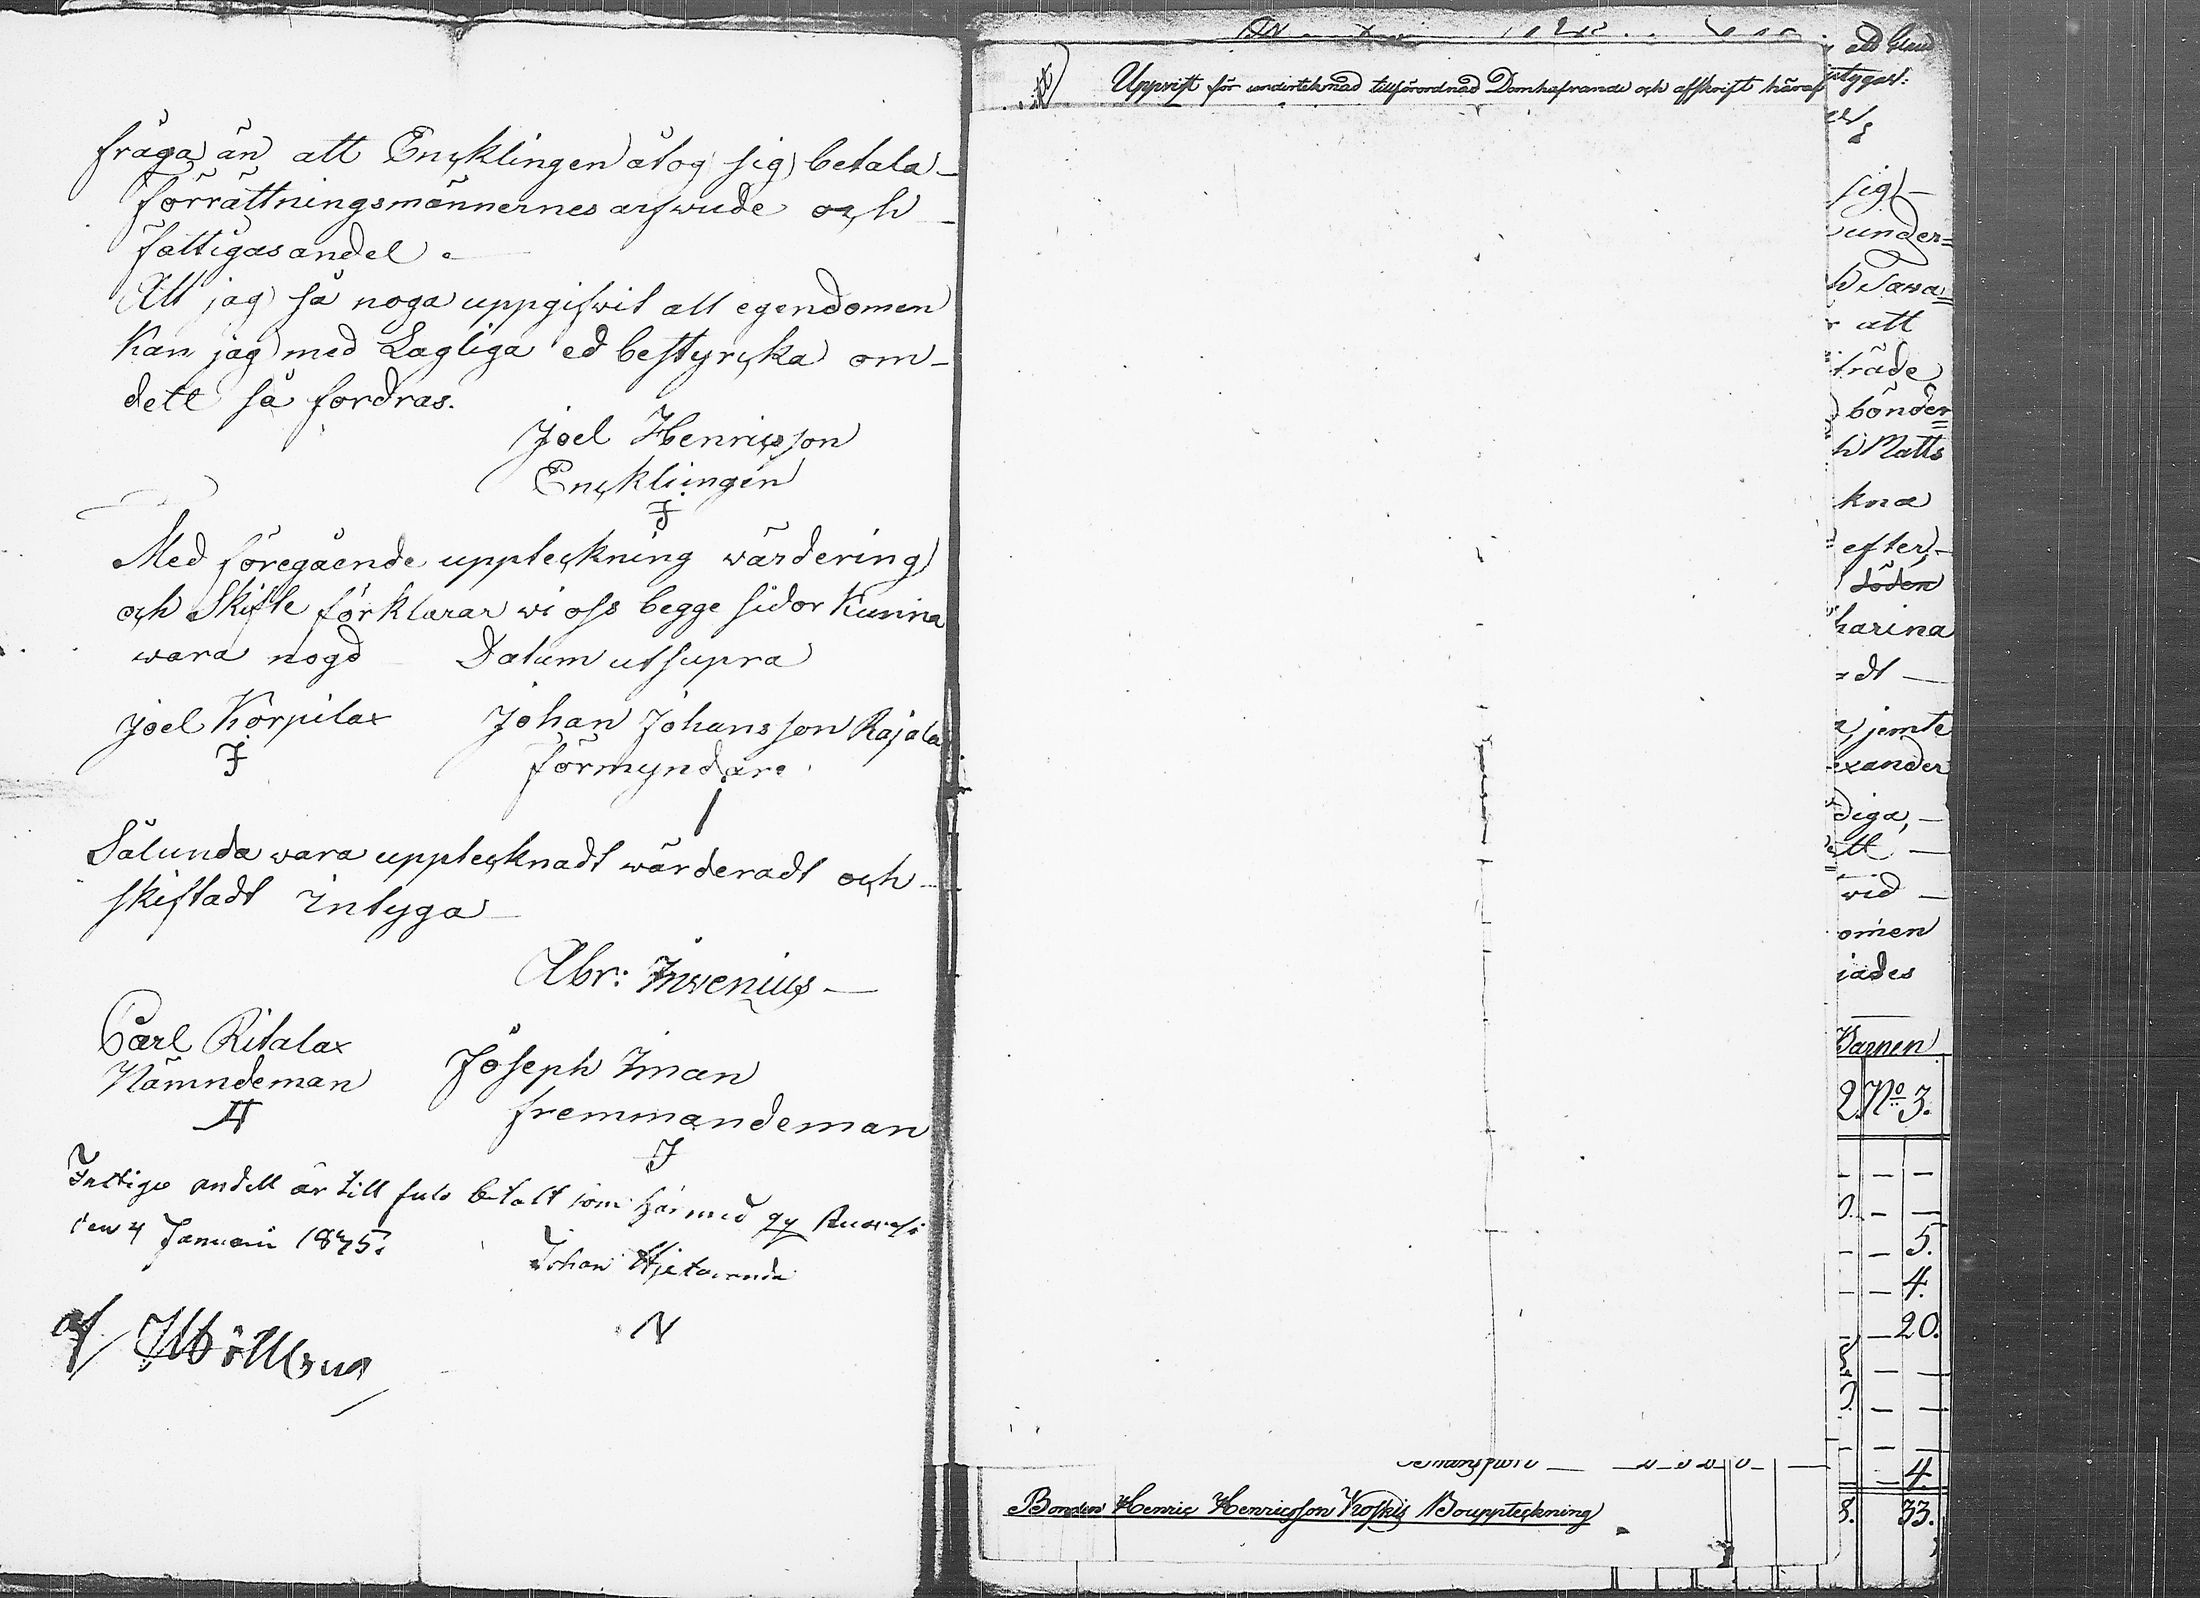 fråga än att Encklingen åtog sig betala
förrättningsmännernes arfwude och
fattigas andel.
Att jag så noga uppgifwit all egendomen
kan jag med Lagliga ed bestyrcka om
dett så fordras.
Joel Henricsson
Encklingen
Med föregående uppteckning wärdering
och Skifte förklarar wi oss begge sidor kunna
wara nogd Datum ut supra
Joel Korpilax Johan Johansson Rajala
förmyndare
Sålunda wara upptecknadt wärderadt och
skiftadt intyga
Abr: Inwenius
Carl Ritalax Joseph Iman
Nämndeman fremmandeman
Fattige andell är till fulo betalt som härmed qv
den 4 Januari 1845.
Johan
N
Upprist för underteknad tillförordnad Domhafvande och afskrift häraf
ed bland
intygas:
sig
under=
h Sara=
att
träde
bönder
h Matts
kna
efter
döden
harina
dt
jemte
exander
diga,
ett
wid
omen
jades
Barnen
2. No 3.
5.
4.
20.
4.
8. 33.
Bonden Henric Henricsson Koskis Bouppteckning